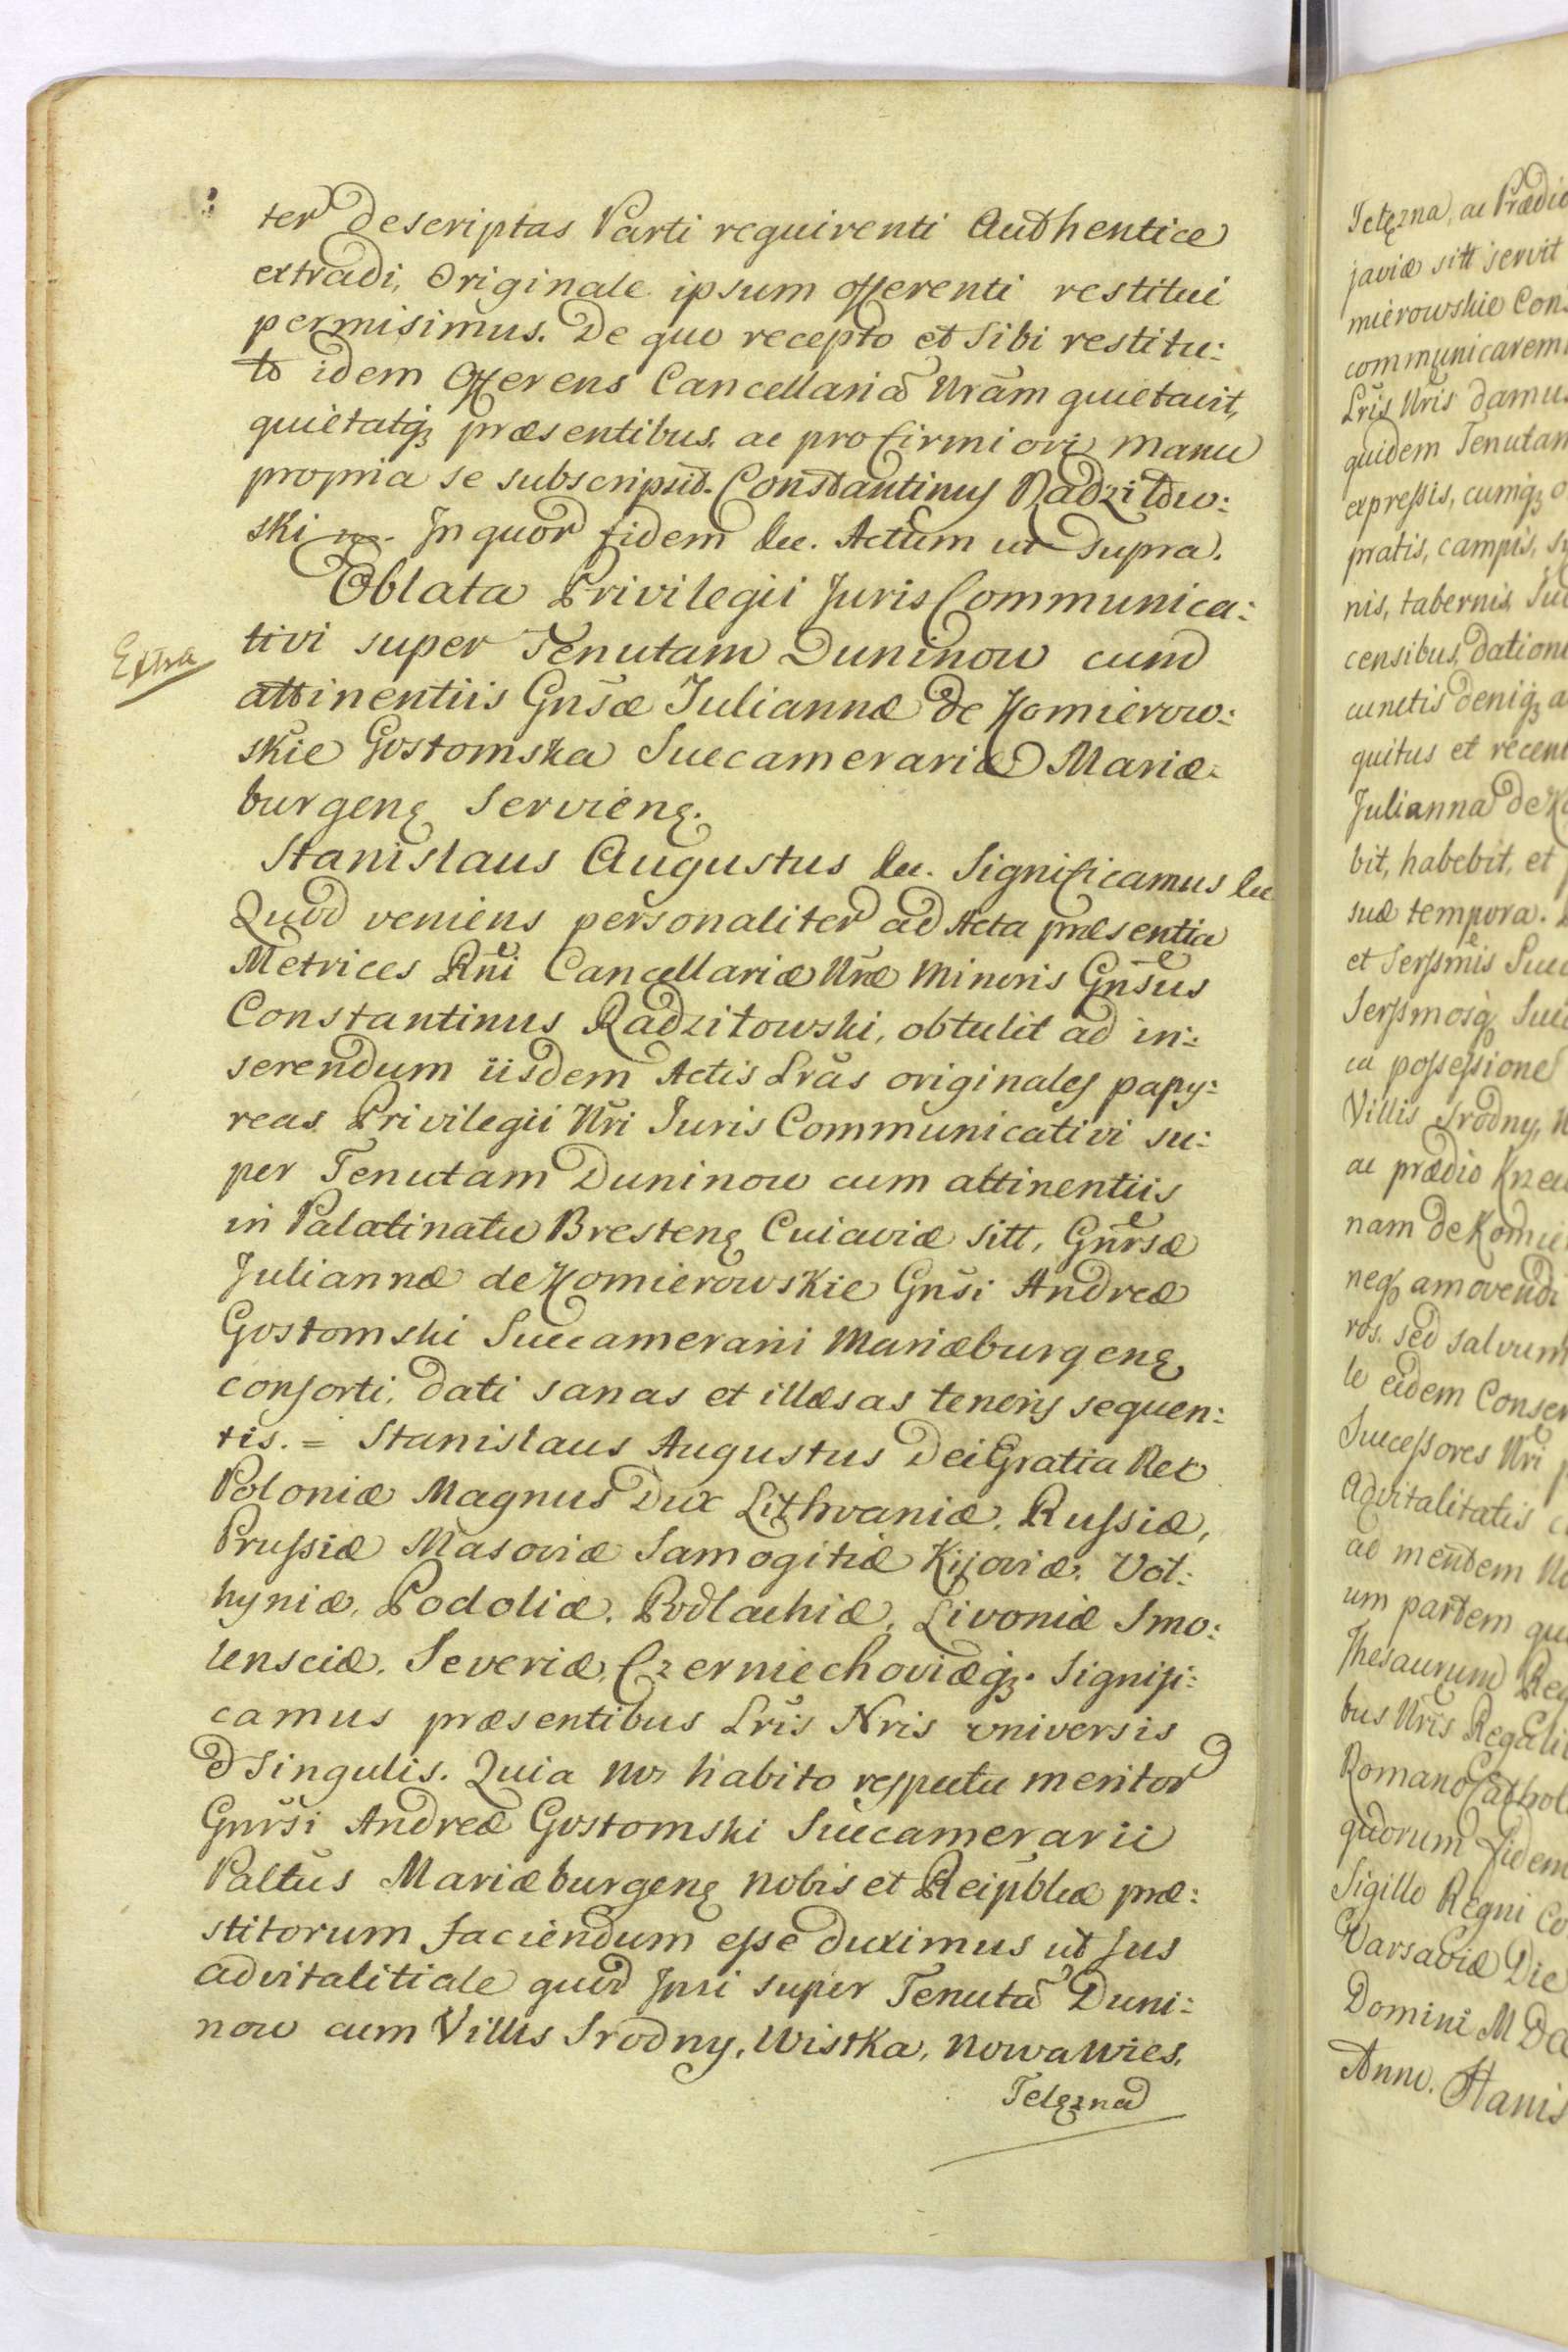 ter descriptas Parti requirenti Authentice
extradi, Originale ipsum offerenti restitui
permisimus. De quo recepto et Sibi restitu:
to idem Offerens Cancellariã Nrãm quietavit,
quietatq; præsentibus, ac pro firmiori manu
propria se subscripsit. Constantinus Radziłow:
ski mp. In quor fidem &c. Actum ut supra.
Oblata Privilegii Juris Communica:
Extra
tivi super Tenutam Duninow cum
attinentiis Gnsæ Juliannæ de Komierow:
skie Gostomska Succamerariæ Mariæ:
burgenę Servienę.
Stanislaus Augustus &c. Significamus &c
Quod veniens personaliter ad Acta præsentia
Metrices Rni Cancellariæ Nræ Minoris Gnsus
Constantinus Radzitowski, obtulit ad in:
serendum iisdem Actis Lras originales papy:
reas Privilegii Nri Juris Communicativi su:
per Tenutam Duninow cum attinentiis
in Palatinatu Brestenę Cuiaviæ sitt, Gnrsæ
Juliannæ de Komierowskie Gnsi Andreæ
Gostomski Succamerarii Mariæburgenę
consorti, dati sanas et illæsas tenoris sequen:
tis. = Stanislaus Augustus Dei Gratia Rex
Poloniæ Magnus Dux Lithvaniæ, Russiæ,
Prussiæ Masoviæ Samogitiæ Kijoviæ, Vol:
hyniæ, Podoliæ, Podlachiæ, Livoniæ Smo:
lensciæ, Severiæ, Czerniechoviæq;. Signifi:
camus præsentibus Lris Nris universis
& Singulis. Quia nos habito respectu meritor
Gnrsi Andreæ Gostomski Succamerarii
Paltus Mariæburgenę nobis et Reipblcæ præ:
stitorum faciendum esse duximus ut Jus
advitalitiale quod Ipsi super Tenutã Duni:
now cum Villis Srodny, Wistka, Nowa wies,
Telęzna
Telęzna, ac Prædio
javiæ sitt servit
mierowskie Cons
communicarem
Lris Nris damus
quidem Tenutam
expressis, cumq; o
pratis, campis, s
nis, tabernis,
censibus, dation
cunctis deniq; a
quitus et recen
Julianna de Ko
bit, habebit, et
suæ tempora.
et Serssmis Succ
Serssmosq; Suc
ca possessione
Villis Srodny, N
ac prædio
nam de Komie
neq; amovendi
ros. sed salvum
le eidem Conser
Successores Nri
Advitalitatis c
ad mentem No
um partem qu
Thesaurum Reg
bus Nris Regali
Romano Cathol
quorum fidem
Sigillo Regni co
Varsaviæ Die
Domini M D
Anno. Stanis